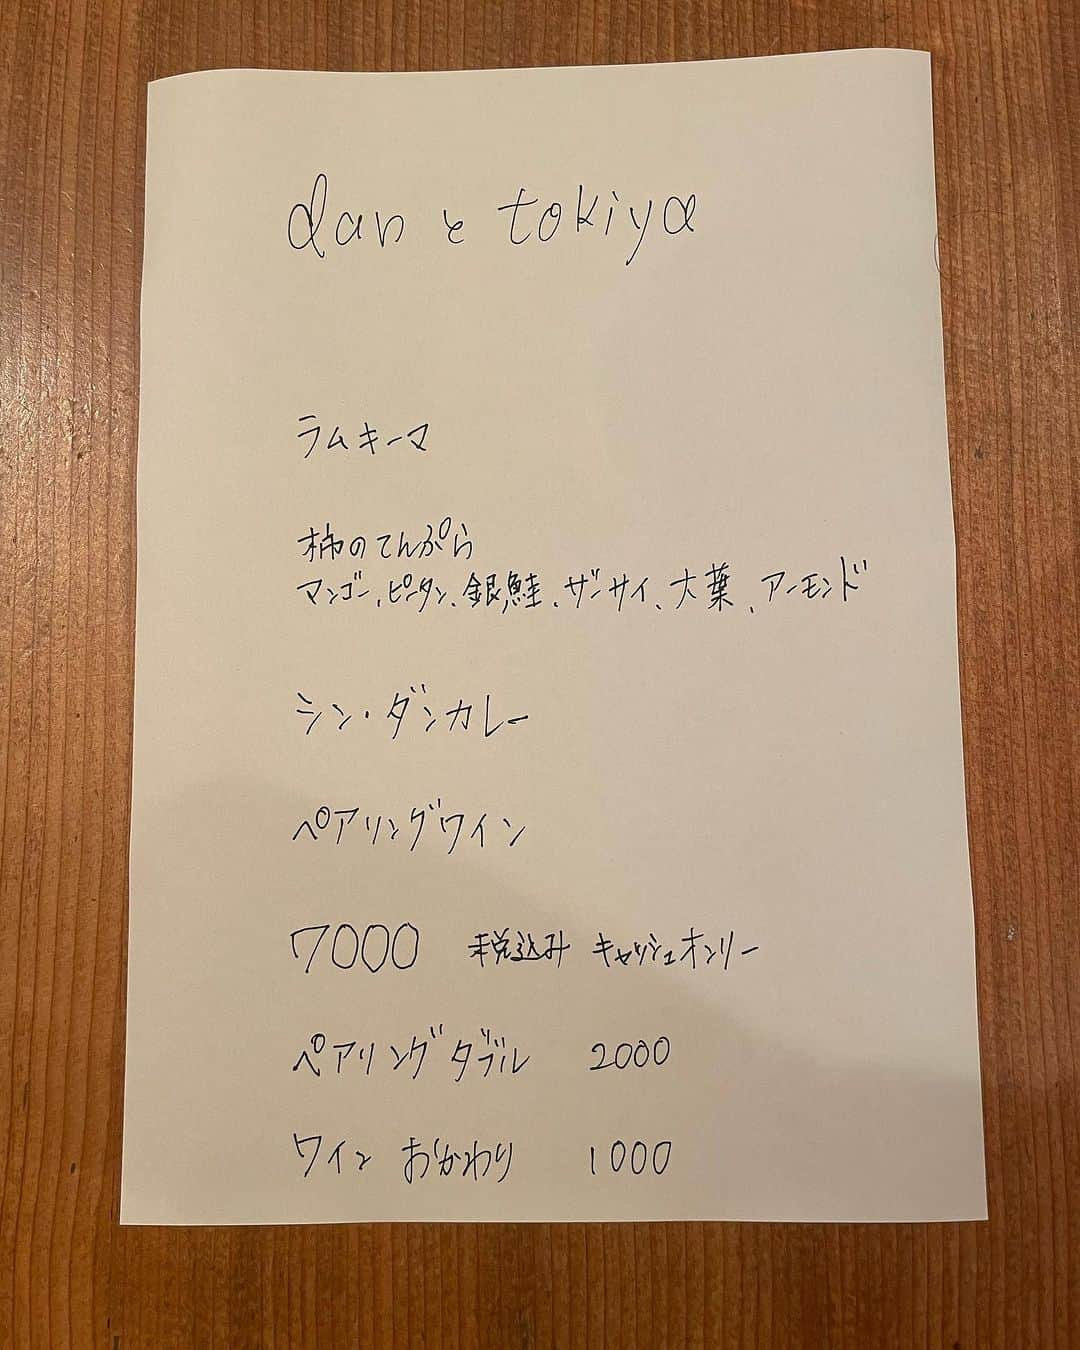 dan と tokiya
ラムキーマ
柿のてんぷら
マンゴー、ピータン、銀鮭、ザーサイ、大葉、アーモンド
シン・ダンカレー
ペアリングワイン
7000 税込み キャッシュオンリー
ペアリングダブル 2000
ワイン おかわり 1000